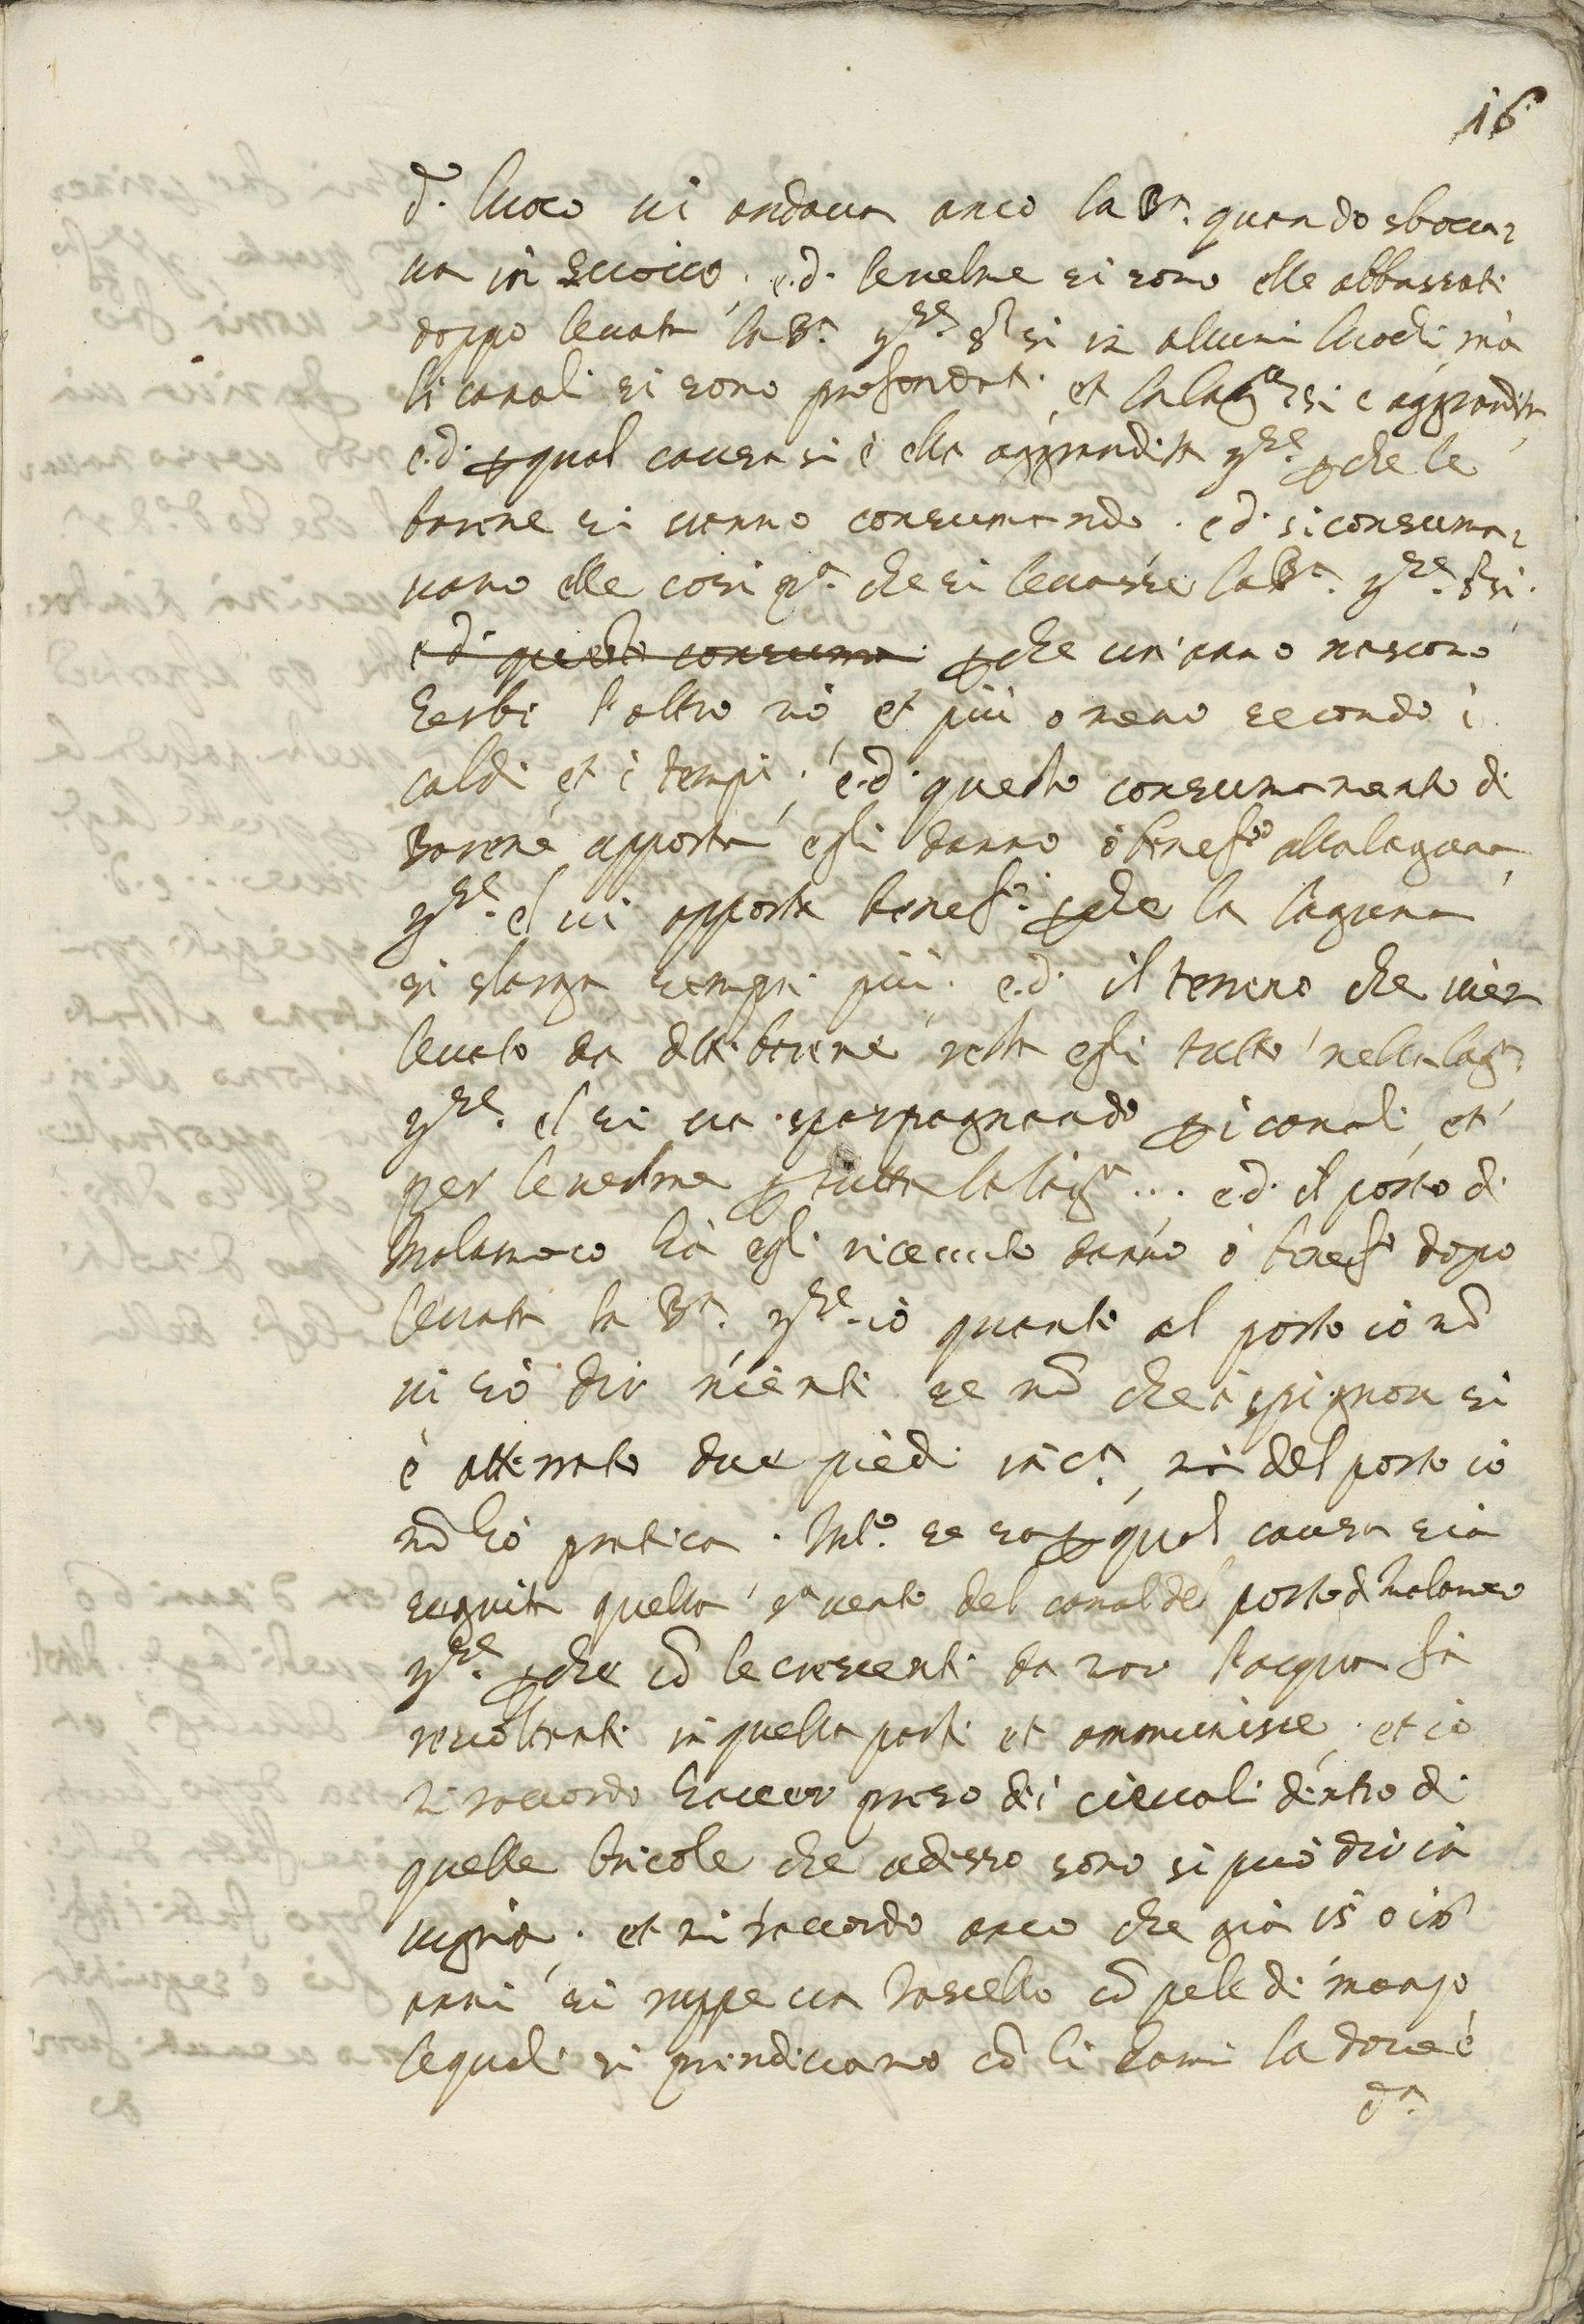 16
d.º luoco ui andaua anco la Bª. quando sboca=
ua in . e.d. le uelme si sono elle abbassate
doppo leuata la Bª. r.se sr si in alcuni luochi, mà
li canali si sono profondati, et la lagª si è aggrandita
e.d. p qual causa si è ella aggrandita r.se pche le
barene si uanno consumando. e.d. si consuma=
uano elle così pª. che si leuasse la Bª. r.se sr si.
e.d. questo consuma. pche un anno nascono
herbe l'altro nò, et più o meno secondo i
caldi et i tempi, e.d. questo consumamento di
Barene apporta egli danno ò benefº alla laguna,
r.se el ui apporta benefº. pche la laguna
si slarga sempre più. e.d. il terreno che uien
leuato da dtte barene resta egli tutto nella lagª
r.se. el si ua sparpagnando p i canali, et
per le uelme p tutta la lagª .... e.d. il porto di
Malamoco hà egli riceuuto danno ò benefº dopo
leuata la Bª. r.se. iò quanto al porto iò nō
ui sò dir niente se nō che i spignon si
è atterrato due piedi in cª, nè del porto iò
nō hò pratica. Intº. se sa p qual causa sia
seguita quella del canal del porto di Malamoco
r.se. pche cō le crescenti da l'acqua fà
reuoltante in quella parte et ammunisce, et iò
mi raccordo hauer preso dei cieuali dentro di
quelle bricole che adesso sono si può dir in
. et mi raccordo anco che già 15 o 16
anni si ruppe un Vascello cō pele di manzo
le quali si prendeuano cō li hami la doue è
dª.